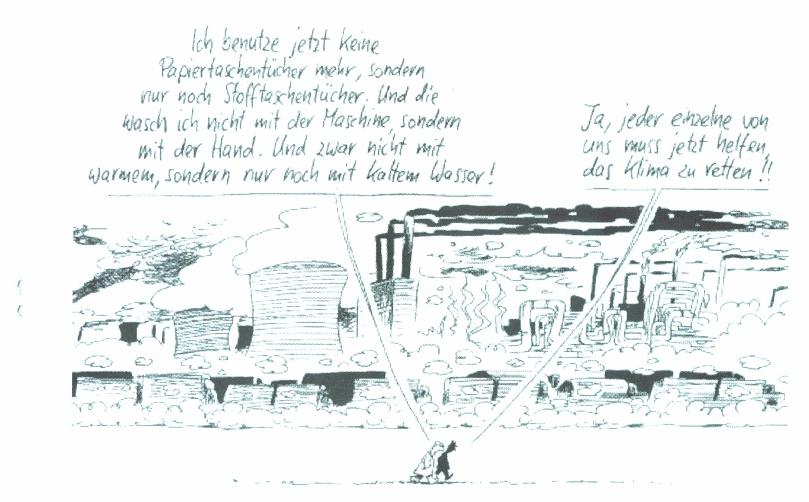 Ich benutze jetzt keine
Papiertaschentücher mehr, sondern
nur noch Stofftaschentücher. Und die
wasch ich nicht mit der Maschine, sondern
mit der Hand. Und zwar nicht mit
warmem, sondern nur noch mit kaltem Wasser!
Ja, jeder einzelne von
uns muss jetzt helfen,
das Klima zu retten!!